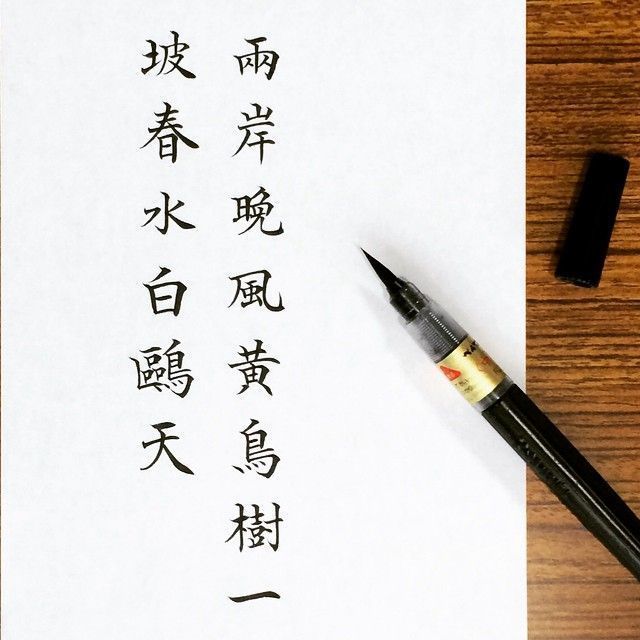 兩岸晚風黃鳥樹一
坡春水白鷗天